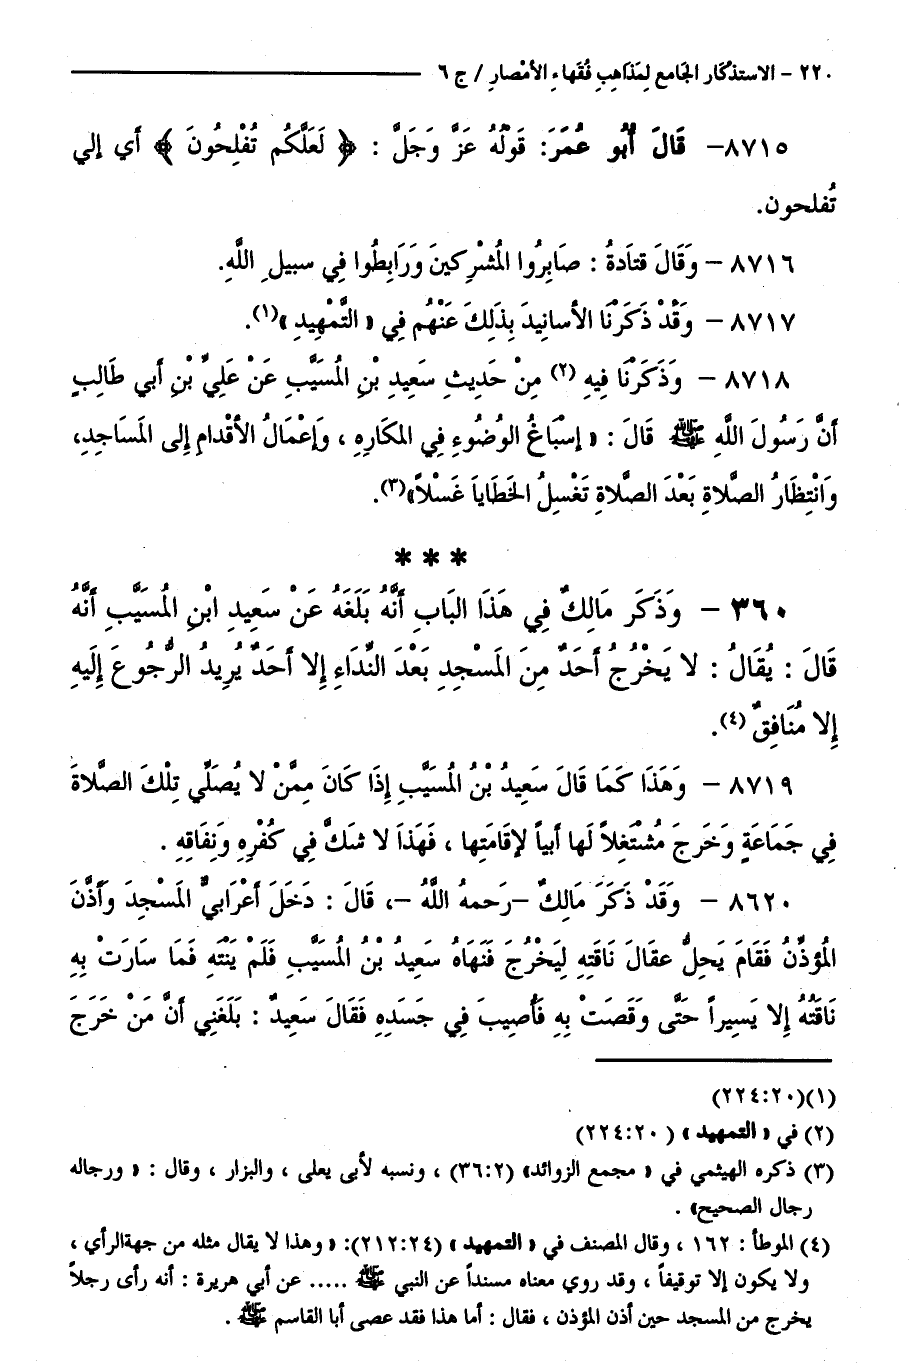 ٢٢٠ - الاستذكار الجامع لِمَذَاهِبِ فُقَهاءِ الأمْصارِ / ج ٦
٨٧١٥- قَالَ أبُو عُمَرَ: قَوْلُهُ عَزَّ وَجَلَّ : ﴿ لَعَلَّكُم تُفْلِحُونَ ﴾ أي إلي
تُفلحون.
٨٧١٦ - وَقَالَ قتادةُ : صَابِرُوا المُشْرِكينَ وَرَابِطُوا فِي سبيلِ اللَّهِ.
٨٧١٧ - وَقَدْ ذَكَرْنَا الأسانيدَ بِذَلِكَ عَنْهُم فِي « التَّمْهِيدِ »(١).
٨٧١٨ - وَذَكَرْنَا فِيهِ (٢) مِنْ حَدِيثِ سَعِيدِ بْنِ المُسَيَّبِ عَنْ عَلِيِّ بْنِ أبي طَالِبٍ
أنَّ رَسُولَ اللَّهِ ﷺ قَالَ : « إسْبَاغُ الوُضُوءِ فِي المكَارِهِ ، وَإعْمَالُ الأقْدامِ إلى المَسَاجِدِ،
وَانْتِظَارُ الصَّلاةِ بَعْدَ الصَّلاةِ تَغْسِلُ الخَطَايا غَسْلاً»(٣).
***
٣٦٠ - وَذَكَرَ مَالِكٌ فِي هَذَا البَابِ أنَّهُ بَلَغَهُ عَنْ سَعِيدِ ابْنِ المُسَيَّبِ أنَّهُ
قَالَ : يُقَالُ : لا يَخْرُجُ أحَدٌ مِنَ المَسْجِدِ بَعْدَ النِّدَاءِ إلا أحَدٌ يُرِيدُ الرُّجُوعَ إلَيهِ
إلا مُنَافِقٌ (٤).
٨٧١٩ - وَهَذَا كَمَا قَالَ سَعِيدُ بْنُ المُسَيَّبِ إذَا كَانَ مِمَّنْ لا يُصَلِّي تِلْكَ الصَّلاةَ
فِي جَمَاعَةٍ وَخَرَجَ مُشْتَغِلاً لَها أبياً لإقَامَتِها ، فَهَذَا لا شَكَّ فِي كُفْرِهِ وَنِفَاقِهِ .
٨٦٢٠ - وَقَدْ ذَكَرَ مَالِكٌ -رَحمهُ اللَّهُ -، قَالَ : دَخَلَ أعْرَابيٌّ المَسْجِدَ وَأَذَّنَ
المُؤذِّنُ فَقَامَ يَحِلُّ عقَالَ نَاقَتِهِ لِيَخْرُجَ فَنَهَاهُ سَعِيدُ بْنُ المُسَيَّبِ فَلَمْ يَنْتَهِ فَمَا سَارَتْ بِهِ
نَاقَتُهُ إلا يَسِيراً حَتَّى وَقَصَتْ بِهِ فَأُصِيبَ فِي جَسَدِهِ فَقَالَ سَعِيدٌ : بَلَغَنِي أنَّ مَنْ خَرَجَ
(١)(٢٢٤:٢٠)
(٢) في « التمهيد » (٢٢٤:٢٠)
(٣) ذكره الهيثمي في « مجمع الزوائد» (٣٦:٢) ، ونسبه لأبى يعلى ، والبزار ، وقال : « ورجاله
رجال الصحيح» .
(٤) الموطأ : ١٦٢ ، وقال المصنف في « التمهيد » (٢١٢:٢٤): « وهذا لا يقال مثله من جهةالرأي ،
ولا يكون إلا توقيفاً ، وقد روي معناه مسنداً عن النبي ﷺ ..... عن أبي هريرة : أنه رأى رجلاً
يخرج من المسجد حين أذن المؤذن ، فقال : أما هذا فقد عصى أبا القاسم ﷺ .